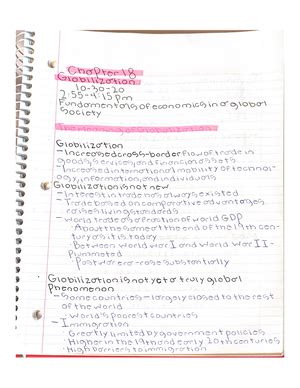 Chapter 18
Globilization
10-30-20
2:55-4:15pm
Fundamentals of economics in a global
society
Globilization
-Increased cross-border flow of trade in
goods, services, and financial assets
-Increased international mobility of technol-
ogy, information, and individuals
Globilization is not new
-Interest in trade has always existed
-Trade based on comparative advantages
raises living standards
-World trade as a fraction of world GDP
-About the same at the end of the 19th cen-
tury as it is today
-Between World War I and World War II-
Plummeted
Postwar era-rose substantially
Globilization is not yet a truly global
Phenomenon
-Some countries-largely closed to the rest
of the world
-World's poorest countries
-Immigration
Greatly limited by government policies
Higher in the 19th and early 20th centuries
High barriers to immigration